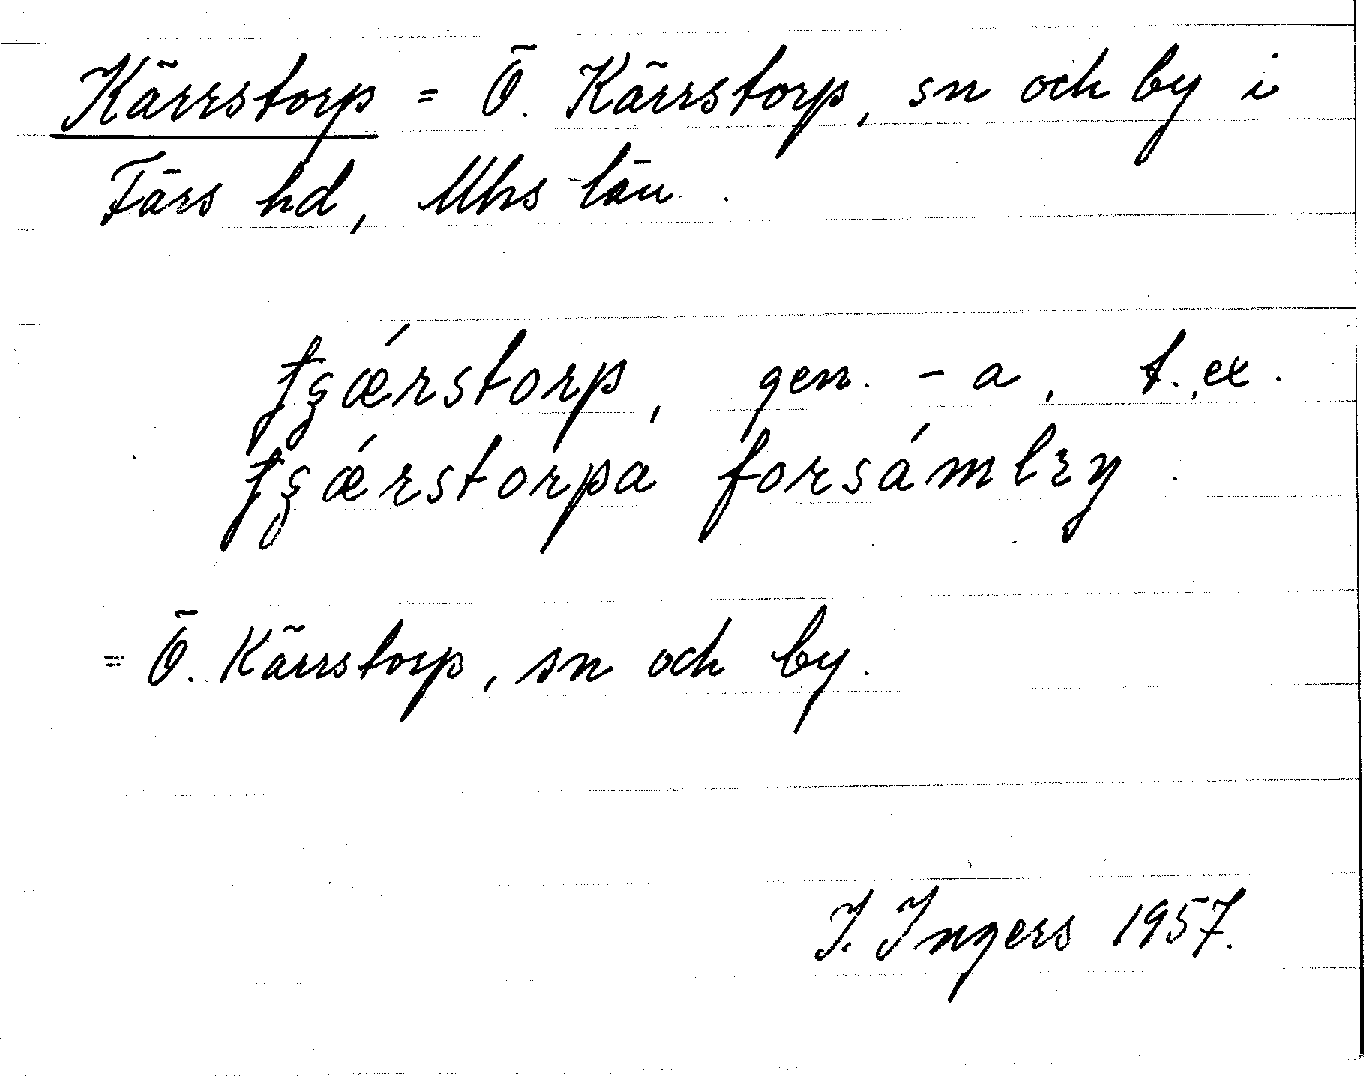 Kärrstorp = Ö. Kärrstorp, sn och by i
Färs hd, Mhs län.
ʈʂǽrstorp, gen. -a, t.ex.
ʈʂǽrstorpa forsámlıŋ.
= Ö. Kärrstorp, sn och by.
I. Ingers 1957.